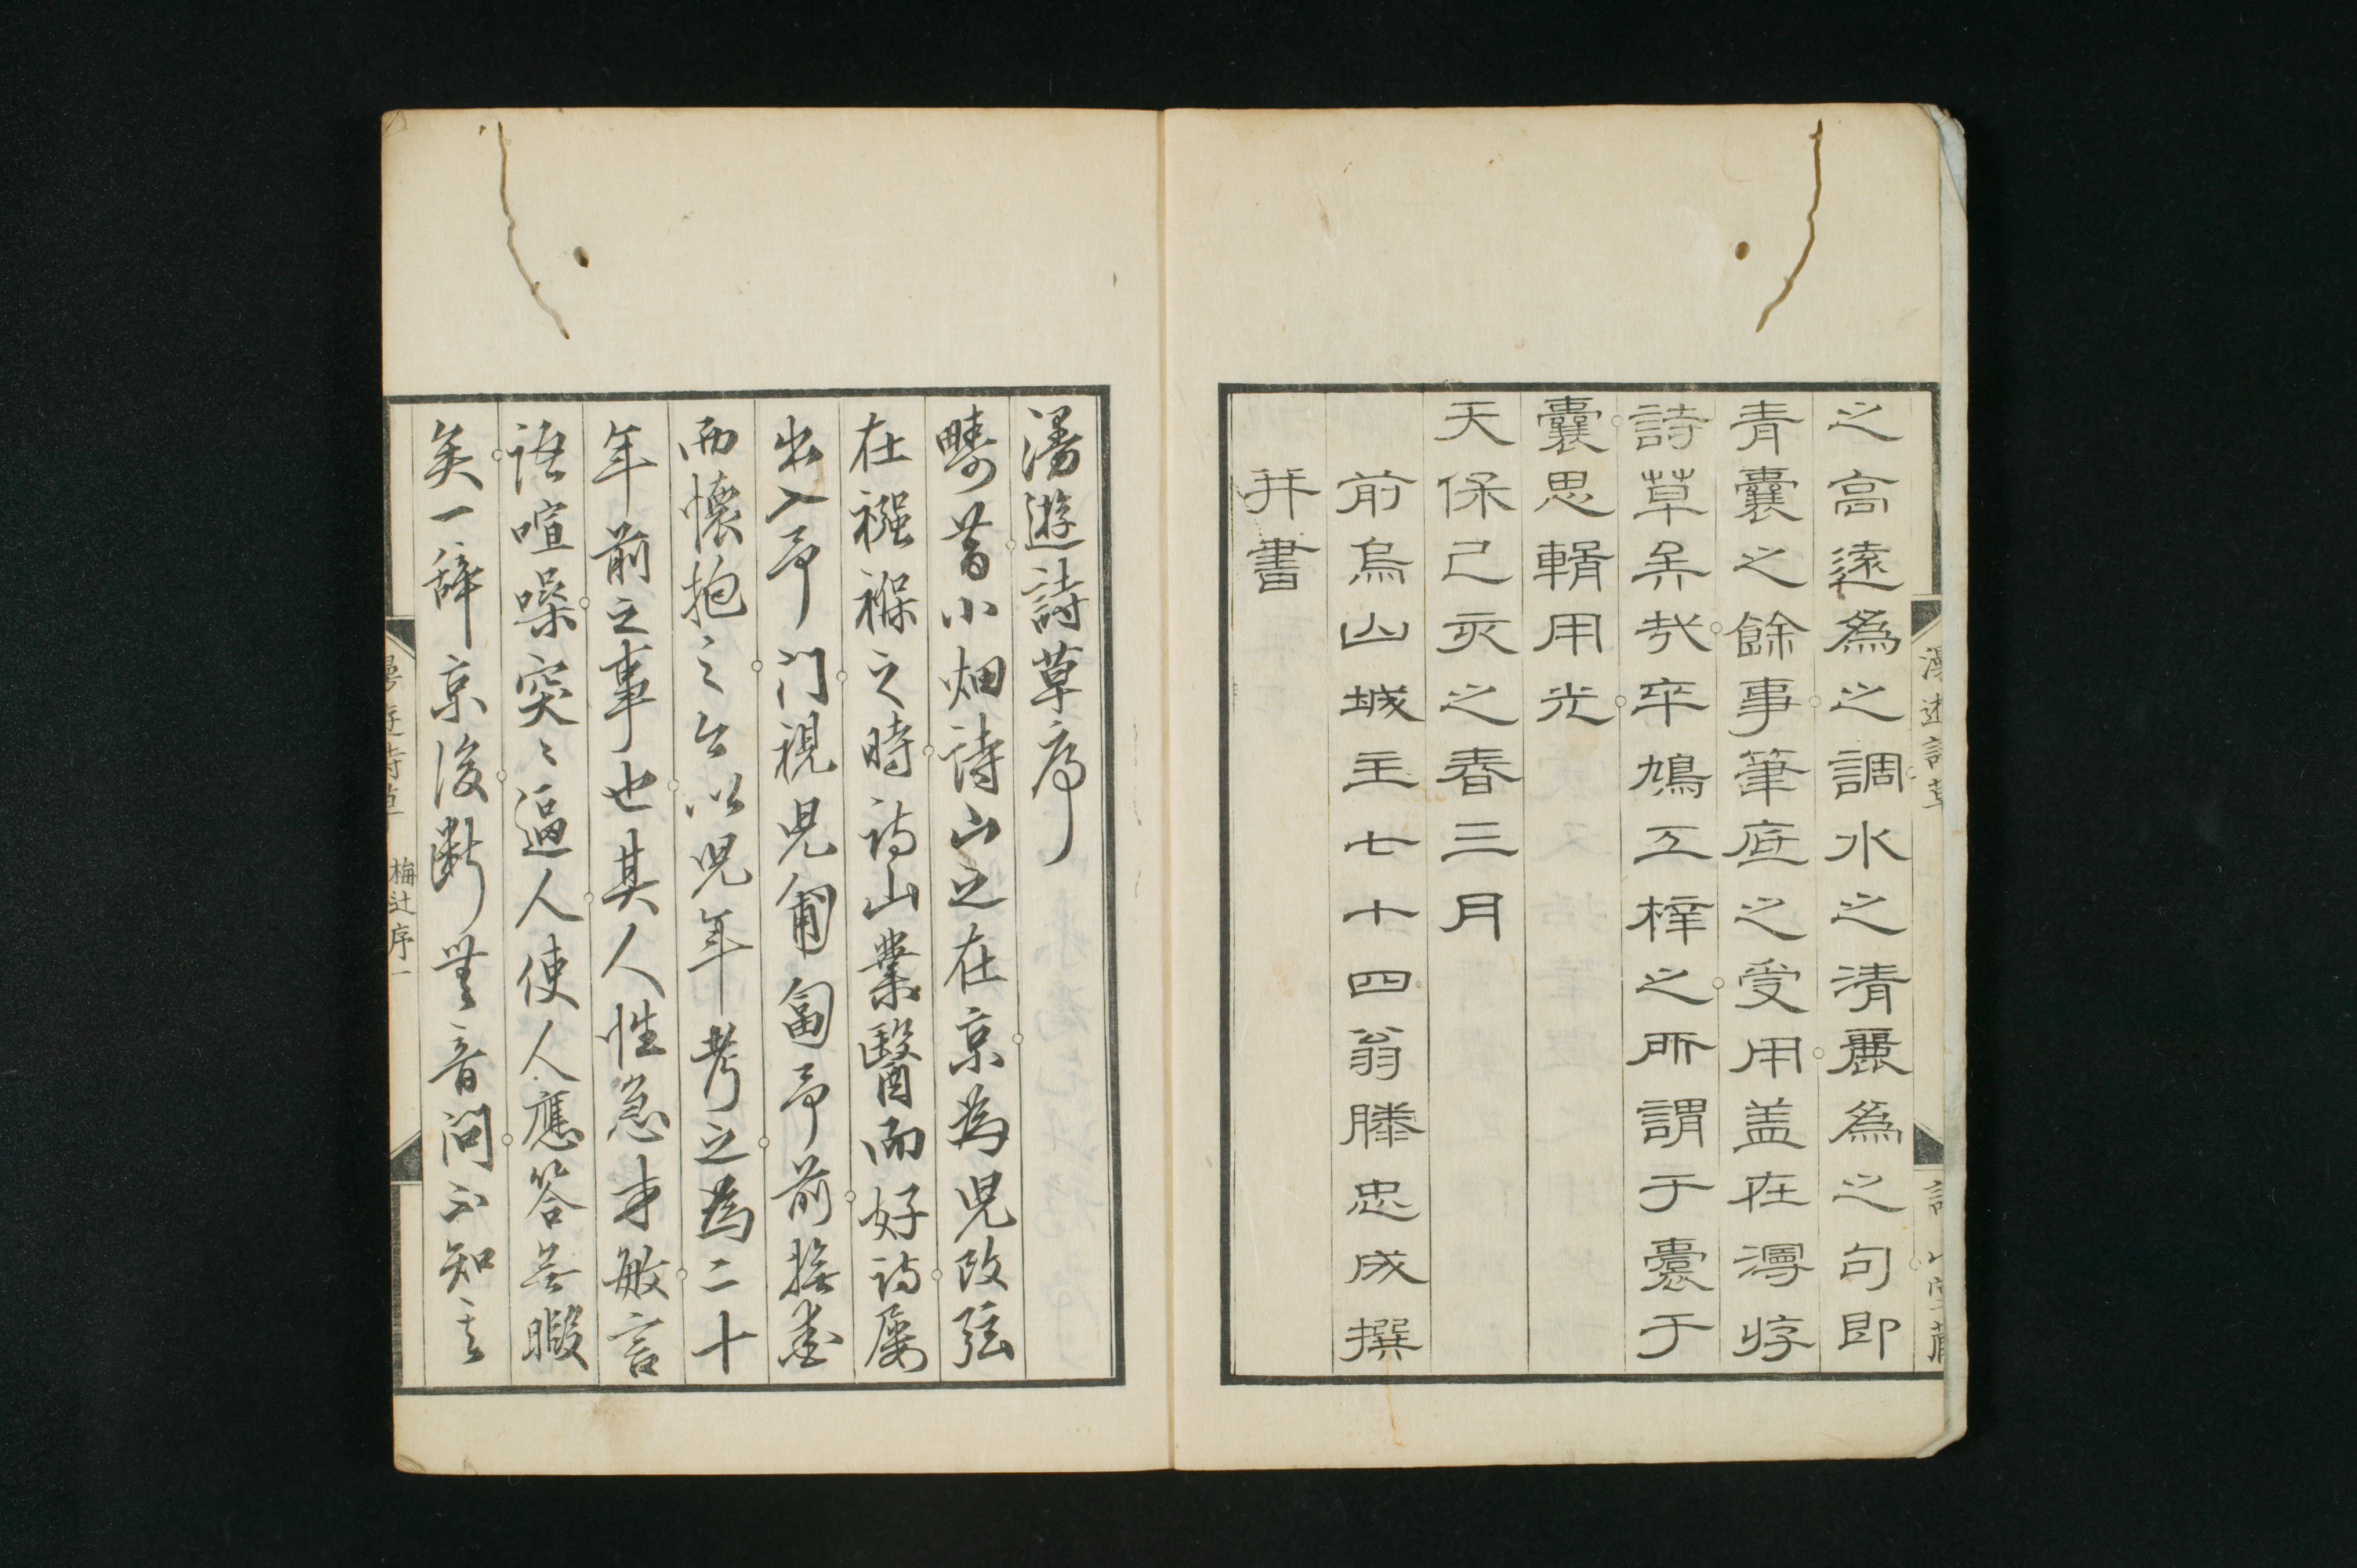 之高遠爲之調水之清麗爲之句即
青囊之餘事筆底之受用盖在灣
詩草矣哉卒鳩工梓之所謂于囊于
囊思輯用光
天保己亥之春三月
前烏山城主七十四翁滕忠成撰
并書
漫遊詩草序
疇昔小畑詩山之在京為児改弦
在襁褓之時詩山業醫而好詩屡
出入予門視児匍匐予前撫愛
而懐抱之云以児年考之為二十
年前之事也其人性急才敏言
語喧噪突〻逼人使人應答無暇
矣一辞京後断無音問不知其
漫遊詩草
梅辻序一